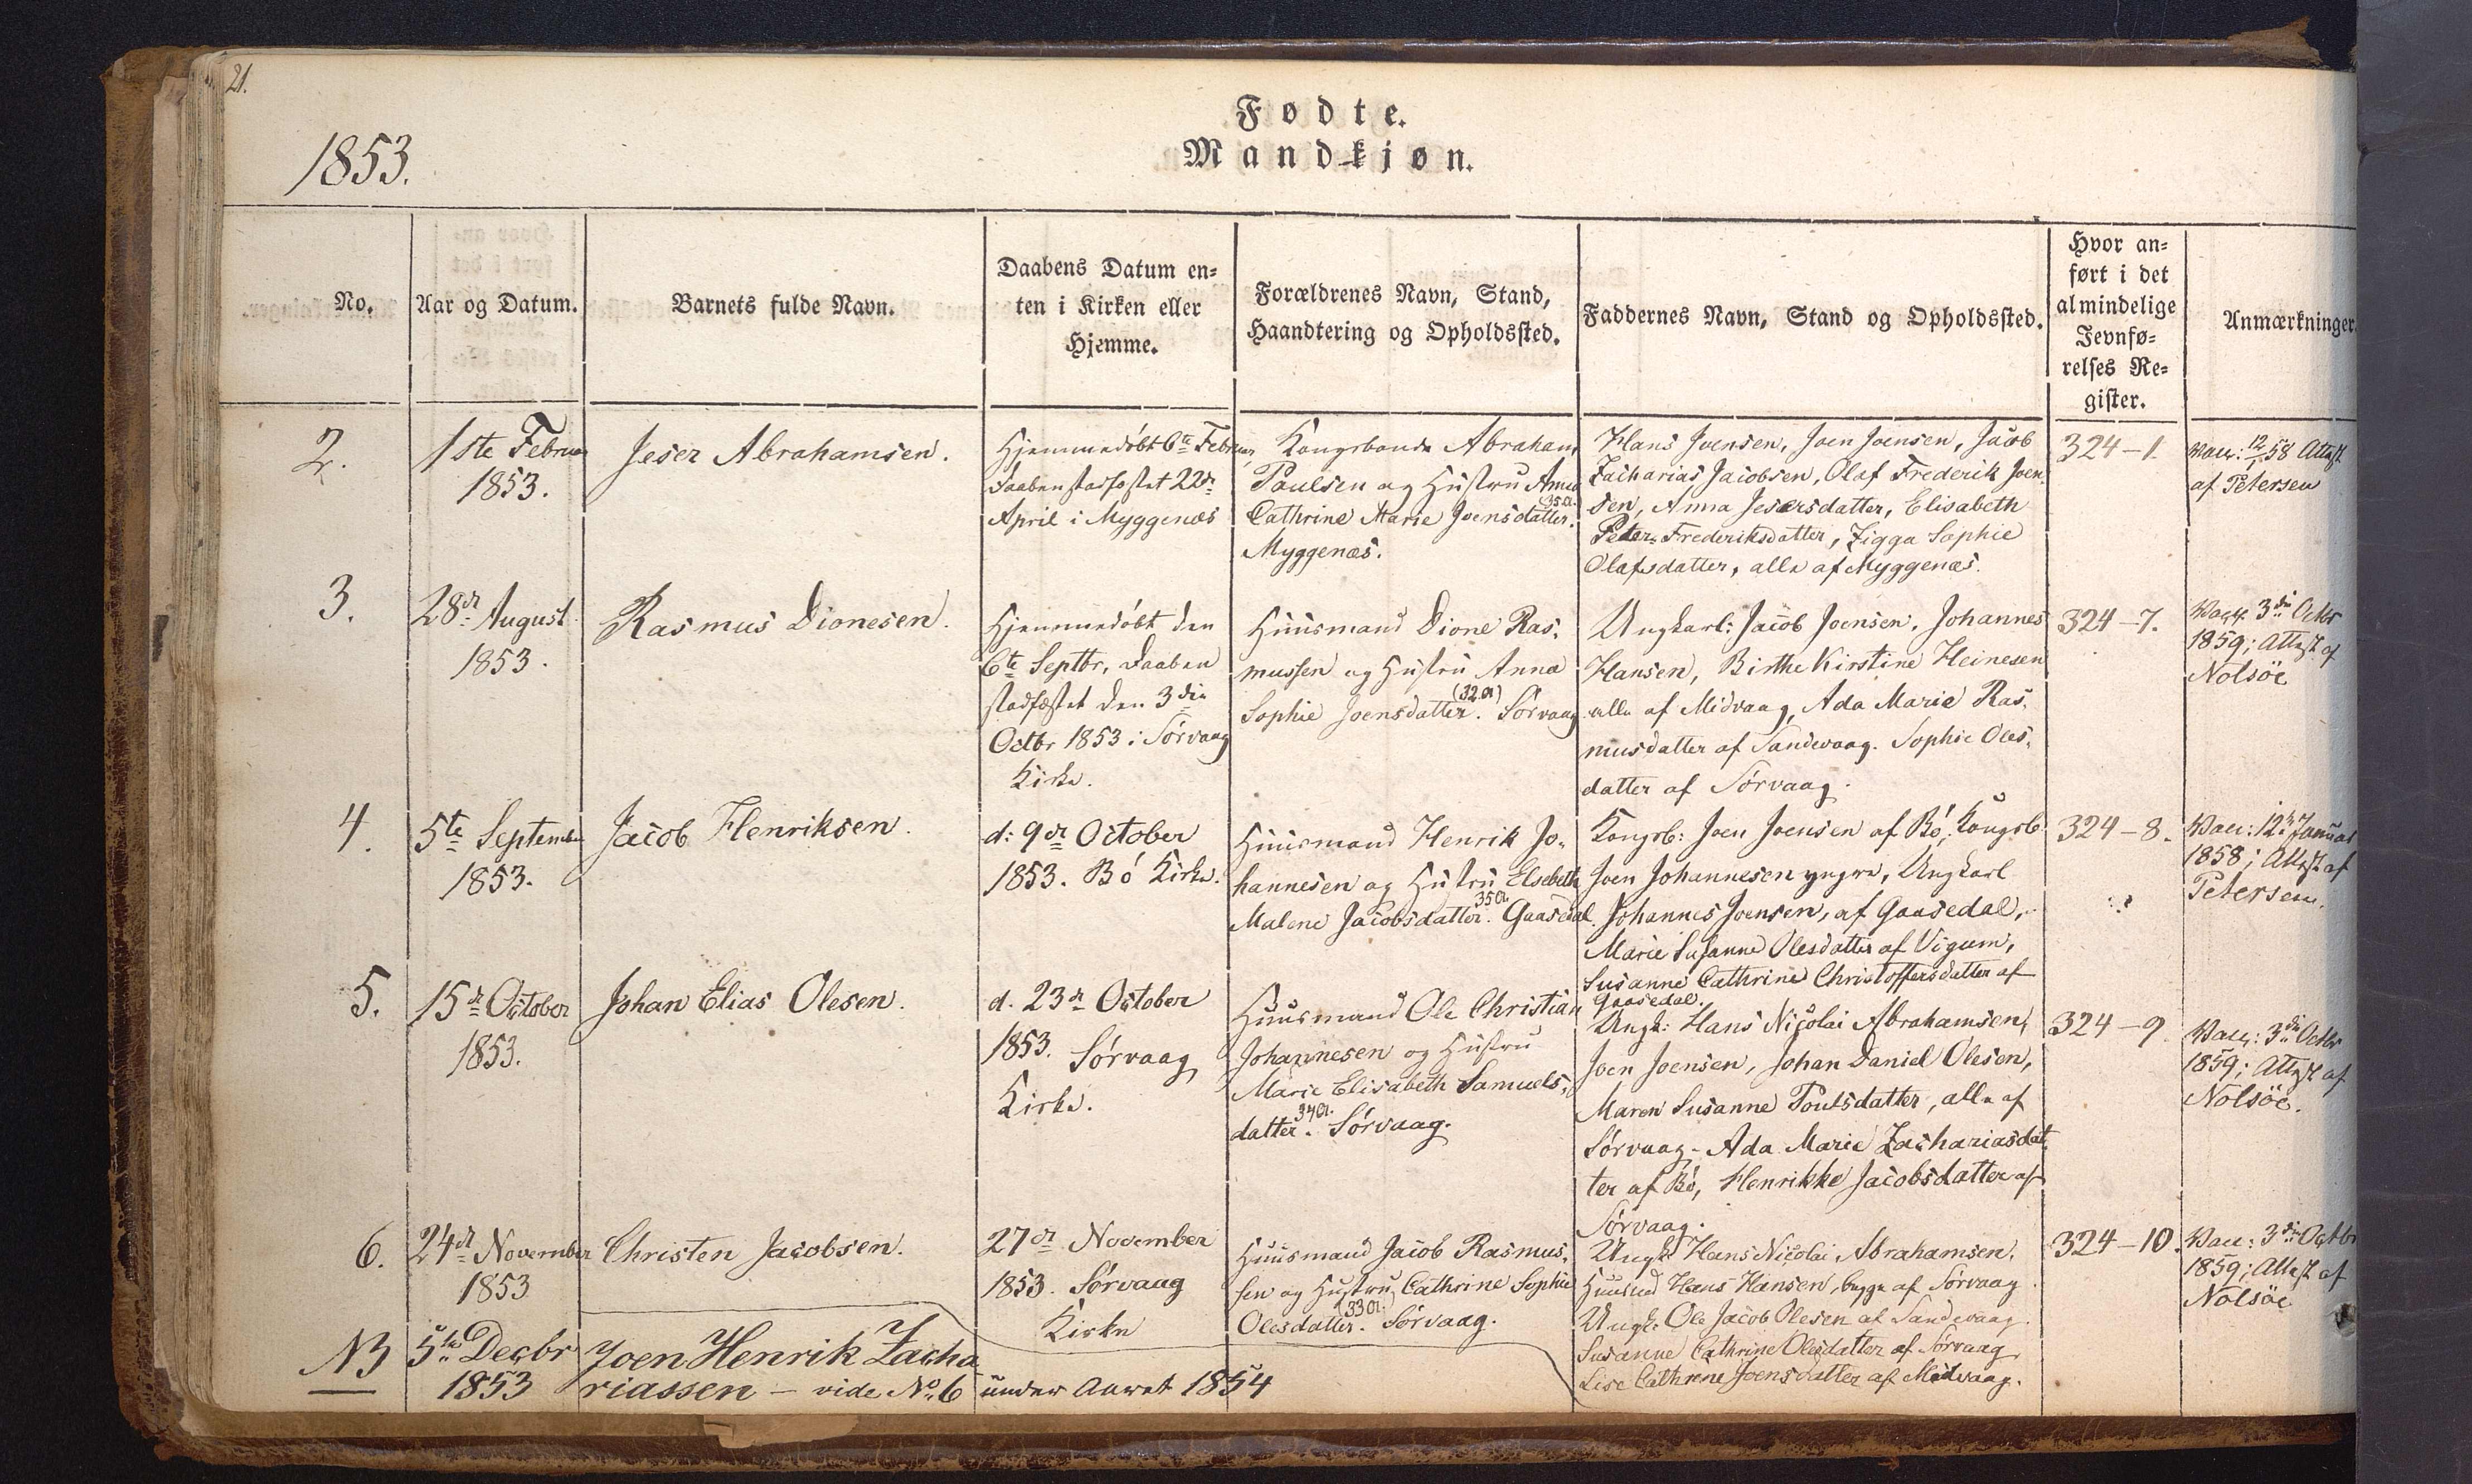 21.
1853.
Fødte.
Mandkjøn.
No.
Aar og Datum.
Barnets fulde Navn.
Daabens Datum en-
ten i Kirken eller
Hjemme.
Forældrenes Navn, Stand,
Haandtering og Opholdssted.
Faddernes Navn, Stand og Opholdssted.
Hvor an-
ført i det
almindelige
Jevnfø-
relses Re-
gister.
Anmærkninger.
2.
1ste Februar
1853.
Jeser Abrahamsen.
Hjemmedöbt 6te Februar,
Daaben stadfæstet 22de
April i Myggenæs
Kongsbonde Abraham
Paulsen og Hustru Anna
Cathrine Marie Joensdatter. (35 A.)
Myggenæs.
Hans Joensen, Joen Joensen, Jacob
Zacharias Jacobsen, Olaf Frederik Joen-
sen, Anna Jesersdatter, Elisabeth
Peter-Frederiksdatter, Zigga Sophie
Olafsdatter, alle af Myggenæs.
324-1.
Vacc: 12/1 58 Attest
af Petersen
3.
28de August
1853.
Rasmus Dionesen.
Hjemmedöbt den
6te Septbr, Daaben
stadfæstet den 3die
Octbr 1853 i Sörvaag
Kirke.
Huusmand Dione Ras-
mussen og Hustru Anna
Sophie Joensdatter. (32 A) Sörvaag
Ungkarl: Jacob Joensen, Johannes
Hansen, Birthe Kirstine Heinesen
alle af Midvaag, Ada Marie Ras-
musdatter af Sandevaag. Sophie Oles-
datter af Sörvaag.
324-7.
Vacc. 3die Octbr
1859; Attest af
Nolsöe
4.
5te September
1853.
Jacob Henriksen.
d: 9de October
1853. Bö Kirke.
Huusmand Henrik Jo-
hannesen og Hustru Elsebeth
Malene Jacobsdatter. 35 A. Gaasedal.
Kongsb: Joen Joensen af Bö, Kongsb
Joen Johannesen yngre, Ungkarl
Johannes Joensen, af Gaasedal,
Marie Susanne Olesdatter af Vigum,
Susanne Cathrine Christoffersdatter af
Gaasedal.
324-8.
Vacc: 12te Januar
1858; Attest af
Petersen.
5.
15de October
1853.
Johan Elias Olesen.
d. 23de October
1853. Sörvaag
Kirke.
Huusmand Ole Christian
Johannesen og Hustru
Marie Elisabeth Samuels-
datter. 34 A. Sörvaag.
Ungk: Hans Nicolai Abrahamsen,
Joen Joensen, Johan Daniel Olesen,
Maren Susanne Poulsdatter, alle af
Sörvaag - Ada Marie Zachariasdat-
ter af Bö, Henrikke Jacobsdatter af
Sörvaag.
324-9
Vacc: 3die Octbr
1859; Attest af
Nolsöe.
6.
24de November
1853
Christen Jacobsen.
27de November
1853. Sörvaag
Kirke
Huusmand Jacob Rasmus-
sen og Hustru Cathrine Sophie
Olesdatter. (33 A.) Sörvaag.
Ungk: Hans Nicolai Abrahamsen,
Huusmd Hans Hansen, begge af Sörvaag
Ungk: Ole Jacob Olesen af Sandevaag.
Susanne Cathrine Olesdatter af Sörvaag
Lise Cathrine Joensdatter af Midvaag.
324-10.
Vacc: 3die Octbr
1859; Attest af
Nolsöe
NB
5te Decbr
1853
Joen Henrik Zacha-
riassen - vide No 6 under Aaret 1854